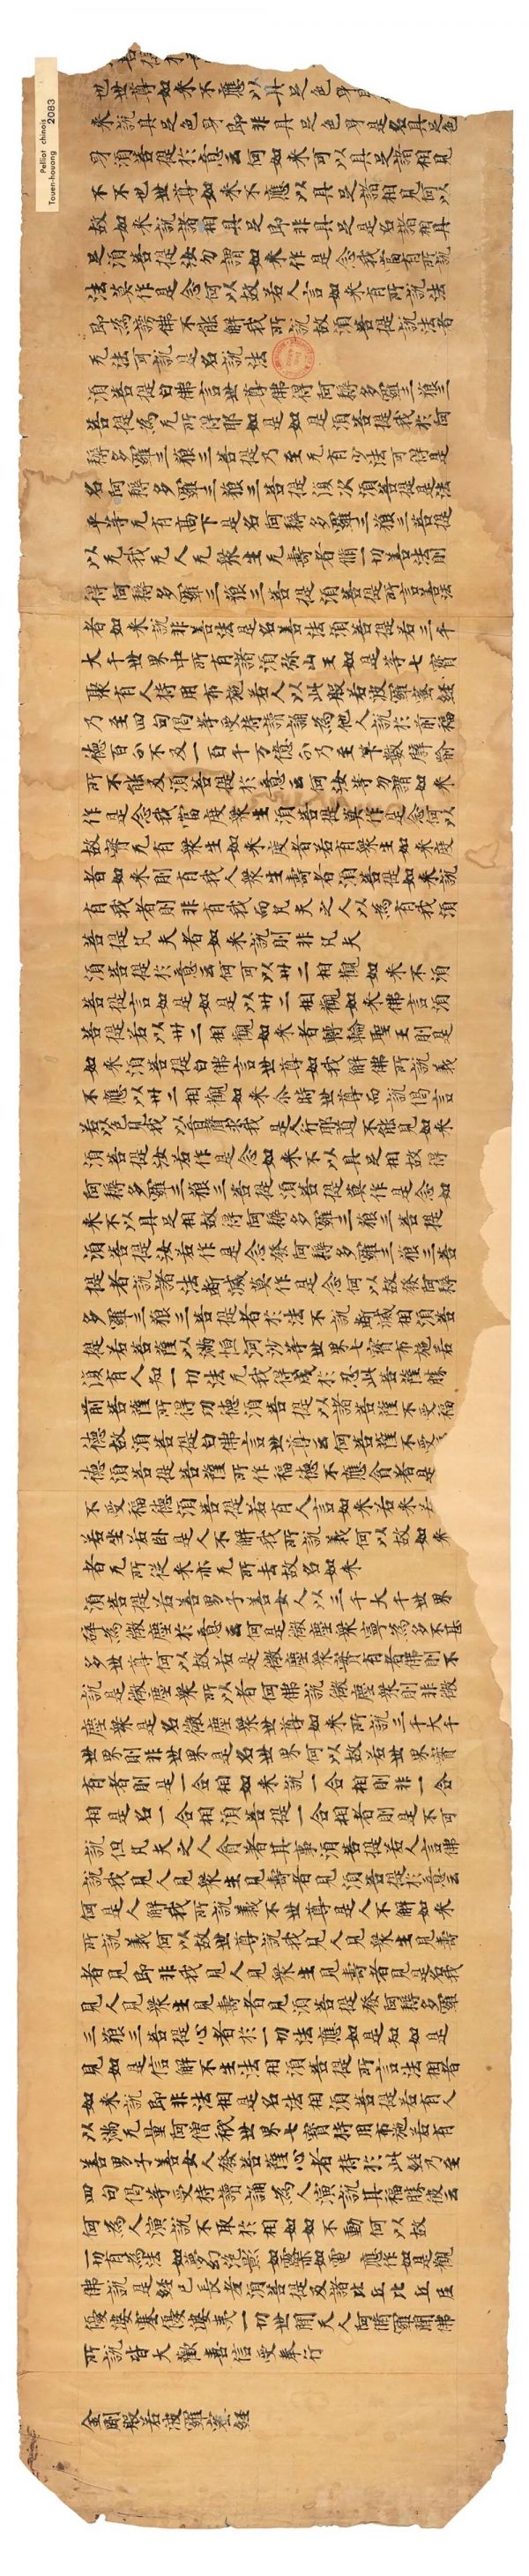 Pelliot chinois
Touen-houang 2083
也世尊如来不應以具足色身
来說具足色身即非具足色身是名具足色
身湏菩提於意云何如来可以具足諸相見
不不也世尊如来不應以具足諸相見何以
故如来說諸相具足即非具足是名諸相具
足湏菩提汝勿謂如来作是念我當有所說
法莫作是念何以故若人言如来有所說法
即為謗佛不能解我所說故湏菩提說法者
无法可說是名說法
湏菩提白佛言世尊佛得阿耨多羅三藐三
菩提為无所得耶如是如是湏菩提我於阿
耨多羅三藐三菩提乃至无有少法可得是
名阿耨多羅三藐三菩提復次湏菩提是法
平等无有高下是名阿耨多羅三藐三菩提
以无我无人无衆生无壽者脩一切善法則
得阿耨多羅三藐三菩提湏菩提所言善法
者如来說非善法是名善法湏菩提若三千
大千世界中所有諸湏弥山王如是等七寳
聚有人持用布施若人以此般若波羅蜜經
乃至四句偈等受持讀誦為他人說於前福
德百分不及一百千万億分乃至筭數譬喻
所不能及湏菩提於意云何汝等勿謂如来
作是念我當度衆生湏菩提莫作是念何以
故實无有衆生如来度者若有衆生如来度
者如来則有我人衆生壽者湏菩提如来說
有我者則非有我而凡夫之人以為有我湏
菩提凡夫者如来說則非凡夫
湏菩提於意云何可以卅二相觀如来不湏
菩提言如是如是以卅二相觀如来佛言湏
菩提若以卅二相觀如来者轉輪聖王則是
如来湏菩提白佛言世尊如我解佛所說義
不應以卅二相觀如来尒時世尊而說偈言
若以色見我 以音聲求我 是人行耶道 不能見如来
湏菩提汝若作是念如来不以具足相故得
阿耨多羅三藐三菩提湏菩提莫作是念如
来不以具足相故得阿耨多羅三藐三菩提
湏菩提汝若作是念發阿耨多羅三藐三菩
提者說諸法断滅莫作是念何以故發阿耨
多羅三藐三菩提者於法不說断滅相湏菩
提若菩薩以滿恒河沙等世界七寳布施若
復有人知一切法无我得成於忍此菩薩勝
前菩薩所得功德湏菩提以諸菩薩不受福
德故湏菩提白佛言世尊云何菩薩不受
德湏菩提菩薩所作福德不應貪著是
不受福德湏菩提若有人言如来若来若
若坐若卧是人不解我所說義何以故如来
者无所從来亦无所去故名如来
湏菩提若善男子善女人以三千大千世界
碎為微塵於意云何是微塵衆寧為多不甚
多世尊何以故若是微塵衆實有者佛則不
說是微塵衆所以者何佛說微塵衆則非微
塵衆是名微塵衆世尊如来所說三千大千
世界則非世界是名世界何以故若世界實
有者則是一合相如来說一合相則非一合
相是名一合相湏菩提一合相者則是不可
說但凡夫之人貪著其事湏菩提若人言佛
說我見人見衆生見壽者見湏菩提於意云
何是人解我所說義不世尊是人不解如来
所說義何以故世尊說我見人見衆生見壽
者見即非我見人見衆生見壽者見是名我
見人見衆生見壽者見湏菩提發阿耨多羅
三藐三菩提心者於一切法應如是知如是
見如是信解不生法相湏菩提所言法相者
如来說即非法相是名法相湏菩提若有人
以滿无量阿僧祇世界七寳持用布施若有
善男子善女人發菩薩心者持於此經乃至
四句偈等受持讀誦為人演說其福勝彼云
何為人演說不取於相如如不動何以故
一切有為法 如夢幻泡影 如露亦如電 應作如是觀
佛說是經已長老湏菩提及諸比丘比丘尼
優婆塞優婆夷一切世間天人阿脩羅聞佛
所說皆大歡喜信受奉行
金剛般若波羅蜜經